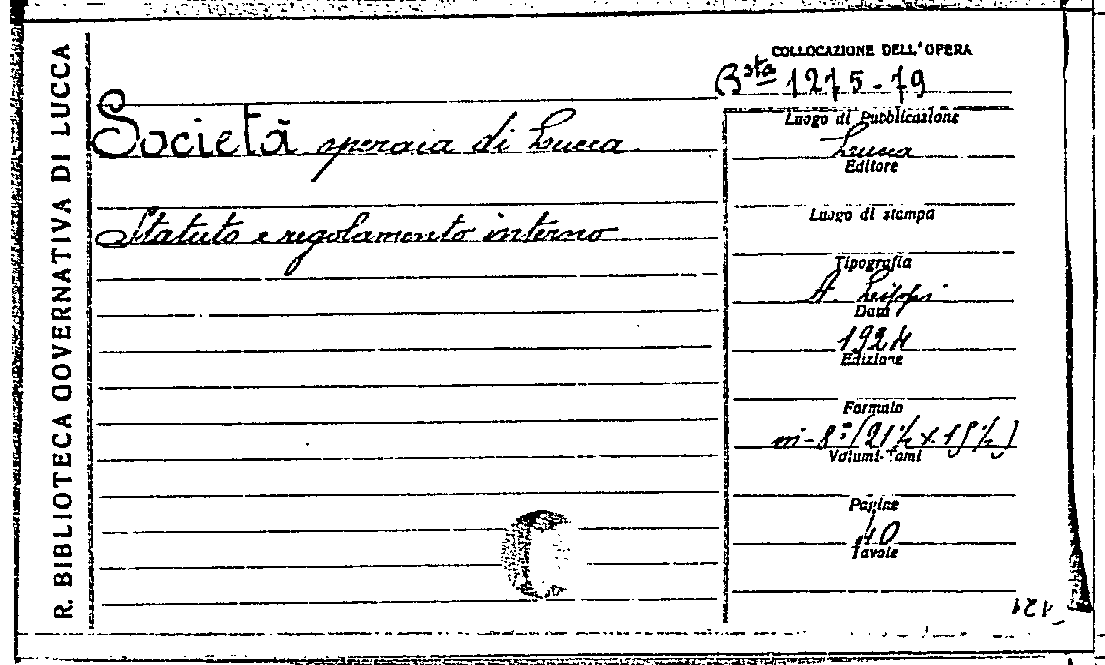 R. BIBLIOTECA GOVERNATIVA DI LUCCA
Società operaia di Lucca
Statuto e regolamento interno
COLLOCAZIONE DELL'OPERA
Bsta 1275-79
Luogo di Pubblicazione
Lucca
Editore
Luogo di stampa
Tipografia
A.
Data
1924
Edizione
Formato
in-8º (21½ x 15½)
Volumi-Tomi
Pagine
40
Tavole